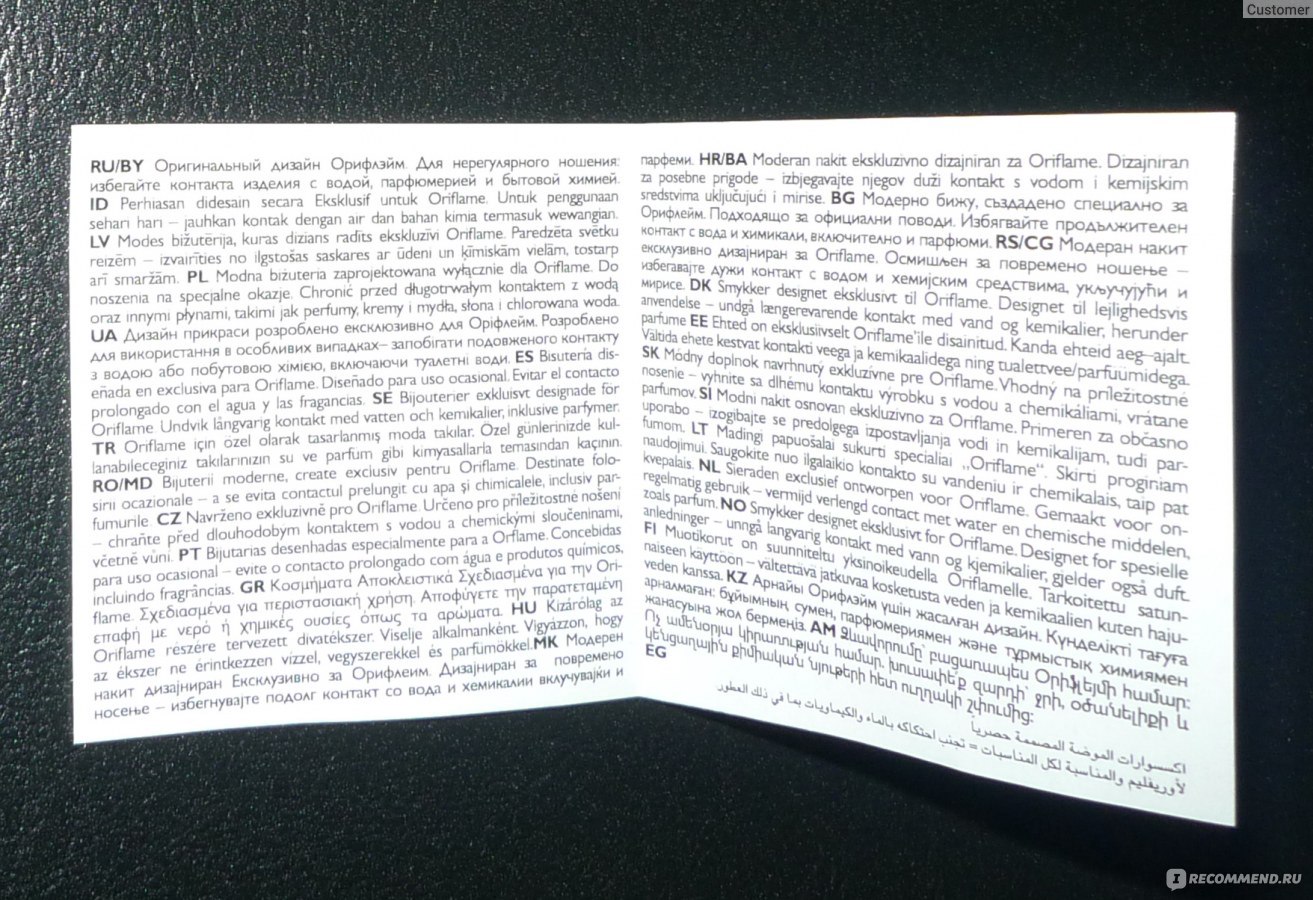 Customer
RU/BY Оригинальный дизайн Орифлэйм. Для нерегулярного ношения:
избегайте контакта изделия с водой, парфюмерией и бытовой химией.
ID Perhiasan didesain secara Eksklusif untuk Oriflame. Untuk penggunaan
sehari hari – jauhkan kontak dengan air dan bahan kimia termasuk wewangian.
LV Modes bižutērija, kuras dizians radīts ekskluzīvi Oriflame. Paredzēta svētku
reizēm – izvairīties no ilgstošas saskares ar ūdeni un ķīmiskām vielām, tostarp
arī smaržām. PL Modna biżuteria zaprojektowana wyłącznie dla Oriflame. Do
noszenia na specjalne okazje. Chronić przed długotrwałym kontaktem z wodą
oraz innymi płynami, takimi jak perfumy, kremy i mydła, słona i chlorowana woda.
UA Дизайн прикраси розроблено ексклюзивно для Оріфлейм. Розроблено
для використання в особливих випадках– запобігати подовженого контакту
з водою або побутовою хімією, включаючи туалетні води. ES Bisutería dis-
eñada en exclusiva para Oriflame. Diseñado para uso ocasional. Evitar el contacto
prolongado con el agua y las fragancias. SE Bijouterier exkluisvt designade för
Oriflame Undvik långvarig kontakt med vatten och kemikalier, inklusive parfymer.
TR Oriflame için özel olarak tasarlanmış moda takılar. Özel günlerinizde kul-
lanabileceginiz takılarınızın su ve parfüm gibi kimyasallarla temasından kaçının.
RO/MD Bijuterii moderne, create exclusiv pentru Oriflame. Destinate folo-
sirii ocazionale – a se evita contactul prelungit cu apa şi chimicalele, inclusiv par-
fumurile. CZ Navrženo exkluzivně pro Oriflame. Určeno pro příležitostné nošení
– chraňte před dlouhodobým kontaktem s vodou a chemickými sloučeninami,
včetně vůní. PT Bijutarias desenhadas especialmente para a Orflame. Concebidas
para uso ocasional – evite o contacto prolongado com água e produtos químicos,
incluindo fragrâncias. GR Κοσμήματα Αποκλειστικά Σχεδιασμένα για την Ori-
flame. Σχεδιασμένα για περιστασιακή χρήση. Αποφύγετε την παρατεταμένη
επαφή με νερό ή χημικές ουσίες όπως τα αρώματα. HU Kizárólag az
Oriflame részére tervezett divatékszer. Viselje alkalmanként. Vigyázzon, hogy
az ékszer ne érintkezzen vízzel, vegyszerekkel és parfümökkel. MK Модерен
накит дизајниран Ексклузивно за Орифлеим. Дизајниран за повремено
носење – избегнувајте подолг контакт со вода и хемикалии вклучувајќи и
парфеми. HR/BA Moderan nakit ekskluzivno dizajniran za Oriflame. Dizajniran
za posebne prigode – izbjegavajte njegov duži kontakt s vodom i kemijskim
sredstvima uključujući i mirise. BG Модерно бижу, създадено специално за
Орифлейм. Подходящо за официални поводи. Избягвайте продължителен
контакт с вода и химикали, включително и парфюми. RS/CG Модеран накит
ексклузивно дизајниран за Oriflame. Осмишљен за повремено ношење –
избегавајте дужи контакт с водом и хемијским средствима, укључујући и
мирисе. DK Smykker designet eksklusivt til Oriflame. Designet til lejlighedsvis
anvendelse – undgå længerevarende kontakt med vand og kemikalier, herunder
parfume EE Ehted on eksklusiivselt Oriflame'ile disainitud. Kanda ehteid aeg–ajalt.
Vältida ehete kestvat kontakti veega ja kemikaalidega ning tualettvee/parfüümidega.
SK Módny doplnok navrhnutý exkluzívne pre Oriflame. Vhodný na príležitostné
nosenie – vyhnite sa dlhému kontaktu výrobku s vodou a chemikáliami, vrátane
parfumov. SI Modni nakit osnovan ekskluzivno za Oriflame. Primeren za občasno
uporabo – izogibajte se predolgega izpostavljanja vodi in kemikalijam, tudi par-
fumom. LT Madingi papuošalai sukurti specialiai „Oriflame“. Skirti proginiam
naudojimui. Saugokite nuo ilgalaikio kontakto su vandeniu ir chemikalais, taip pat
kvepalais. NL Sieraden exclusief ontworpen voor Oriflame. Gemaakt voor on-
regelmatig gebruik – vermijd verlengd contact met water en chemische middelen,
zoals parfum. NO Smykker designet eksklusivt for Oriflame. Designet for spesielle
anledninger – unngå langvarig kontakt med vann og kjemikalier, gjelder også duft.
FI Muotikorut on suunniteltu yksinoikeudella Oriflamelle. Tarkoitettu satun-
naiseen käyttöön – vältettävä jatkuvaa kosketusta veden ja kemikaalien kuten haju-
veden kanssa. KZ Арнайы Орифлэйм үшін жасалған дизайн. Күнделікті тағуға
арналмаған: бұйымның сумен, парфюмериямен және тұрмыстық химиямен
жанасуына жол бермеңіз. AM Զավվրումը՝ բացառապես Օրիֆլեյմի համար:
Ոչ ամենօրյա կիրառության համար. խուսափե՛ք զարդի՝ ջրի, օծանելիքի և
կենցաղային քիմիական նյութերի հետ ուղղակի շփումից:
EG
اكسسوارات الموضة المصممة حصرياً
لأوريفليم والمناسبة لكل المناسبات = تجنب احتكاكه بالماء والكيماويات بما في ذلك العطور
IRECOMMEND.RU